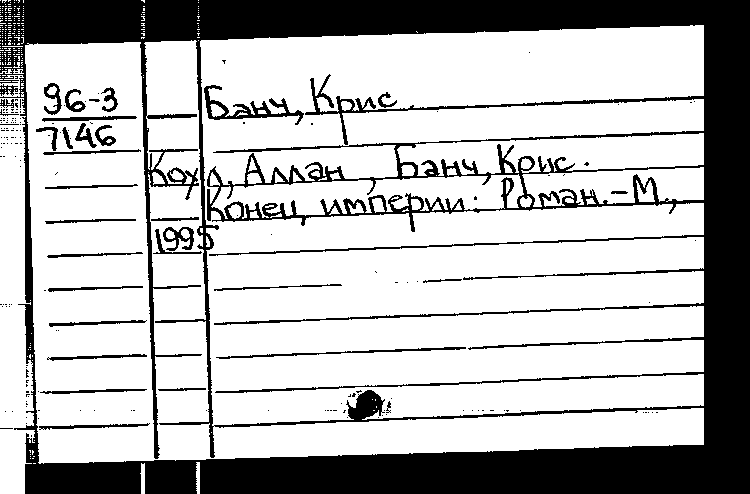 96-3 Банч, Крис.
7146
Коул, Аллан, Банч, Крис.
Конец империи: Роман.-М.,
1995